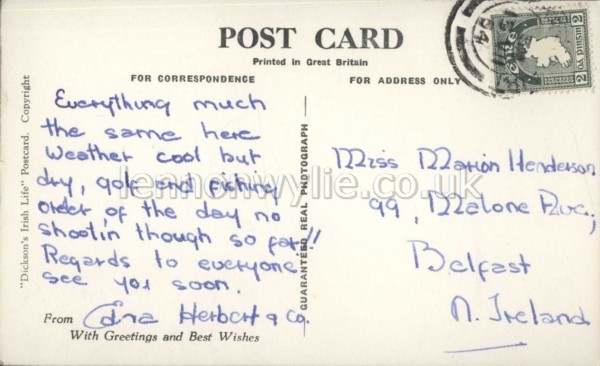 POST CARD
Printed in Great Britain
FOR CORRESPONDENCE
FOR ADDRESS ONLY
"Dickson's Irish Life" Postcard. Copyright
Everything much
the same here
Weather cool but
dry, golf and fishing
order of the day no
shootin though so far!!
Regards to everyone
see you soon.
From Edna Herbert & Co.
With Greetings and Best Wishes
GUARANTEED REAL PHOTOGRAPH
Miss Marion Henderson
99, Malone Ave.,
Belfast
N. Ireland
lennonwylie.co.uk